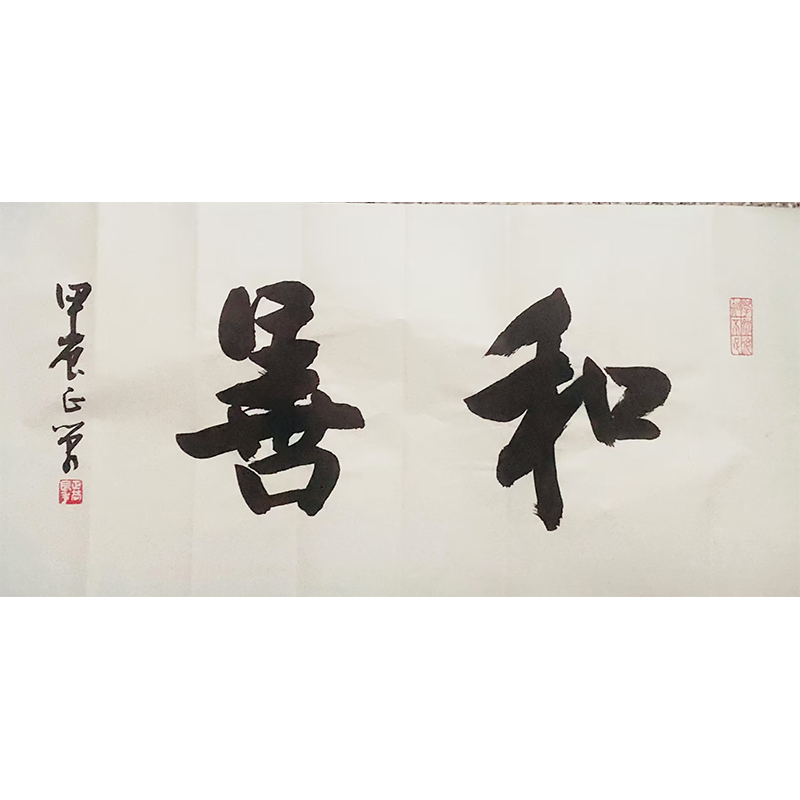 和善
甲辰正